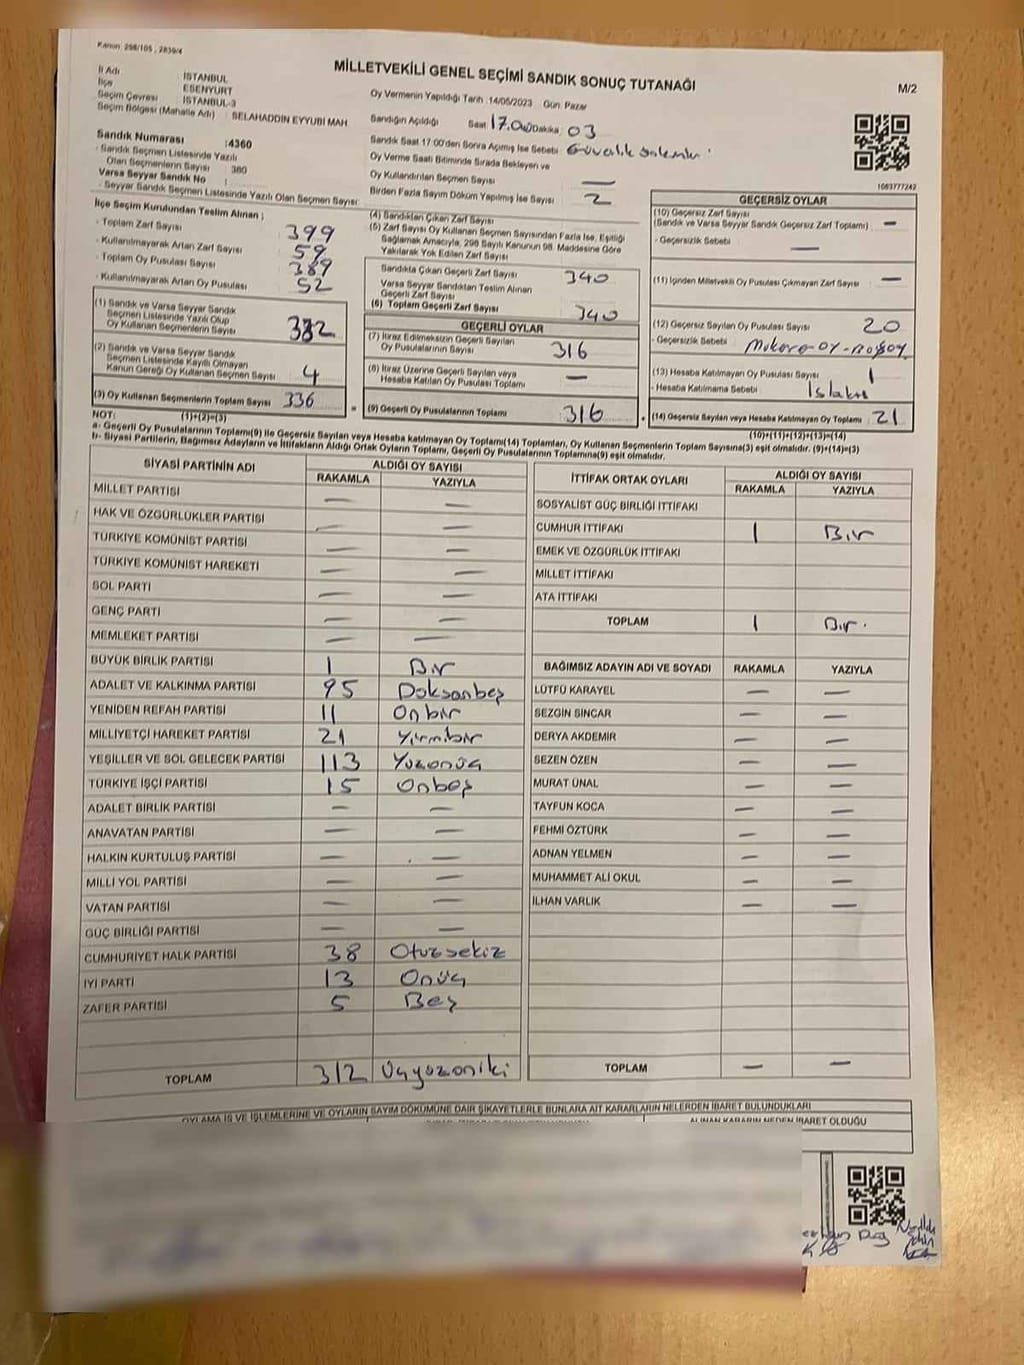 Kanun: 298/105 , 2839/4
MİLLETVEKİLİ GENEL SEÇİMİ SANDIK SONUÇ TUTANAĞI
M/2
İl Adı : İSTANBUL
İlçe : ESENYURT
Seçim Çevresi : İSTANBUL-3
Seçim Bölgesi (Mahalle Adı) : SELAHADDİN EYYUBİ MAH
Oy Vermenin Yapıldığı Tarih :14/05/2023 Gün: Pazar
Sandığın Açıldığı Saat 17.00 Dakika: 03
Sandık Saat 17:00'den Sonra Açımış İse Sebebi:
Oy Verme Saati Bitiminde Sırada Bekleyen ve
Oy Kullandırılan Seçmen Sayısı —
Birden Fazla Sayım Döküm Yapılmış İse Sayısı 2
Sandık Numarası :4360
- Sandık Seçmen Listesinde Yazılı
Olan Seçmenlerin Sayısı : 380
Varsa Seyyar Sandık No :
- Seyyar Sandık Seçmen Listesinde Yazılı Olan Seçmen Sayısı:
1083777242
İlçe Seçim Kurulundan Teslim Alınan ;
- Toplam Zarf Sayısı 399
- Kullanılmayarak Artan Zarf Sayısı 59
- Toplam Oy Pusulası Sayısı 389
- Kullanılmayarak Artan Oy Pusulası 52
(1) Sandık ve Varsa Seyyar Sandık
Seçmen Listesinde Yazılı Olup
Oy Kullanan Seçmenlerin Sayısı 332
(2) Sandık ve Varsa Seyyar Sandık
Seçmen Listesinde Kayıtlı Olmayan
Kanun Gereği Oy Kullanan Seçmen Sayısı 4
(3) Oy Kullanan Seçmenlerin Toplam Sayısı 336
(1)+(2)=(3)
(4) Sandıktan Çıkan Zarf Sayısı
(5) Zarf Sayısı Oy Kullanan Seçmen Sayısından Fazla İse, Eşitliği
Sağlamak Amacıyla, 298 Sayılı Kanunun 98. Maddesine Göre
Yakılarak Yok Edilen Zarf Sayısı
Sandıkta Çıkan Geçerli Zarf Sayısı 340
Varsa Seyyar Sandıktan Teslim Alınan
Geçerli Zarf Sayısı
(6) Toplam Geçerli Zarf Sayısı 340
GEÇERLİ OYLAR
(7) İtiraz Edilmeksizin Geçerli Sayılan
Oy Pusulalarının Sayısı 316
(8) İtiraz Üzerine Geçerli Sayılan veya
Hesaba Katılan Oy Pusulası Toplamı —
= (9) Geçerli Oy Pusulalarının Toplamı 316 +
GEÇERSİZ OYLAR
(10) Geçersiz Zarf Sayısı —
(Sandık ve Varsa Seyyar Sandık Geçersiz Zarf Toplamı)
- Geçersizlik Sebebi —
(11) İçinden Milletvekili Oy Pusulası Çıkmayan Zarf Sayısı —
(12) Geçersiz Sayılan Oy Pusulası Sayısı 20
- Geçersizlik Sebebi
(13) Hesaba Katılmayan Oy Pusulası Sayısı 1
- Hesaba Katılmama Sebebi
(14) Geçersiz Sayılan veya Hesaba Katılmayan Oy Toplamı 21
(10)+(11)+(12)+(13)=(14)
NOT:
a- Geçerli Oy Pusulalarının Toplamı(9) ile Geçersiz Sayılan veya Hesaba Katılmayan Oy Toplamı(14) Toplamları, Oy Kullanan Seçmenlerin Toplam Sayısına(3) eşit olmalıdır. (9)+(14)=(3)
b- Siyasi Partilerin, Bağımsız Adayların ve İttifakların Aldığı Ortak Oyların Toplamı, Geçerli Oy Pusulalarının Toplamına(9) eşit olmalıdır.
SİYASİ PARTİNİN ADI ALDIĞI OY SAYISI
RAKAMLA YAZIYLA
MİLLET PARTİSİ — —
HAK VE ÖZGÜRLÜKLER PARTİSİ — —
TÜRKİYE KOMÜNİST PARTİSİ — —
TÜRKİYE KOMÜNİST HAREKETİ — —
SOL PARTİ — —
GENÇ PARTİ — —
MEMLEKET PARTİSİ — —
BÜYÜK BİRLİK PARTİSİ 1 Bir
ADALET VE KALKINMA PARTİSİ 95 Doksanbeş
YENİDEN REFAH PARTİSİ 11 Onbir
MİLLİYETÇİ HAREKET PARTİSİ 21 Yirmibir
YEŞİLLER VE SOL GELECEK PARTİSİ 113 Yüzonüç
TÜRKİYE İŞÇİ PARTİSİ 15 Onbeş
ADALET BİRLİK PARTİSİ — —
ANAVATAN PARTİSİ — —
HALKIN KURTULUŞ PARTİSİ — —
MİLLİ YOL PARTİSİ — —
VATAN PARTİSİ — —
GÜÇ BİRLİĞİ PARTİSİ — —
CUMHURİYET HALK PARTİSİ 38 Otuzsekiz
İYİ PARTİ 13 Onüç
ZAFER PARTİSİ 5 Beş
TOPLAM 312 Üçyüzoniki
İTTİFAK ORTAK OYLARI ALDIĞI OY SAYISI
RAKAMLA YAZIYLA
SOSYALİST GÜÇ BİRLİĞİ İTTİFAKI
CUMHUR İTTİFAKI 1 Bir
EMEK VE ÖZGÜRLÜK İTTİFAKI
MİLLET İTTİFAKI
ATA İTTİFAKI
TOPLAM 1 Bir.
BAĞIMSIZ ADAYIN ADI VE SOYADI RAKAMLA YAZIYLA
LÜTFÜ KARAYEL — —
SEZGİN SİNCAR — —
DERYA AKDEMİR — —
SEZEN ÖZEN — —
MURAT ÜNAL — —
TAYFUN KOCA — —
FEHMİ ÖZTÜRK — —
ADNAN YELMEN — —
MUHAMMET ALİ OKUL — —
İLHAN VARLIK — —
TOPLAM — —
OYLAMA İŞ VE İŞLEMLERİNE VE OYLARIN SAYIM DÖKÜMÜNE DAİR ŞİKAYETLERLE BUNLARA AİT KARARLARIN NELERDEN İBARET BULUNDUKLARI
ALINAN KARARIN NEDEN İBARET OLDUĞU